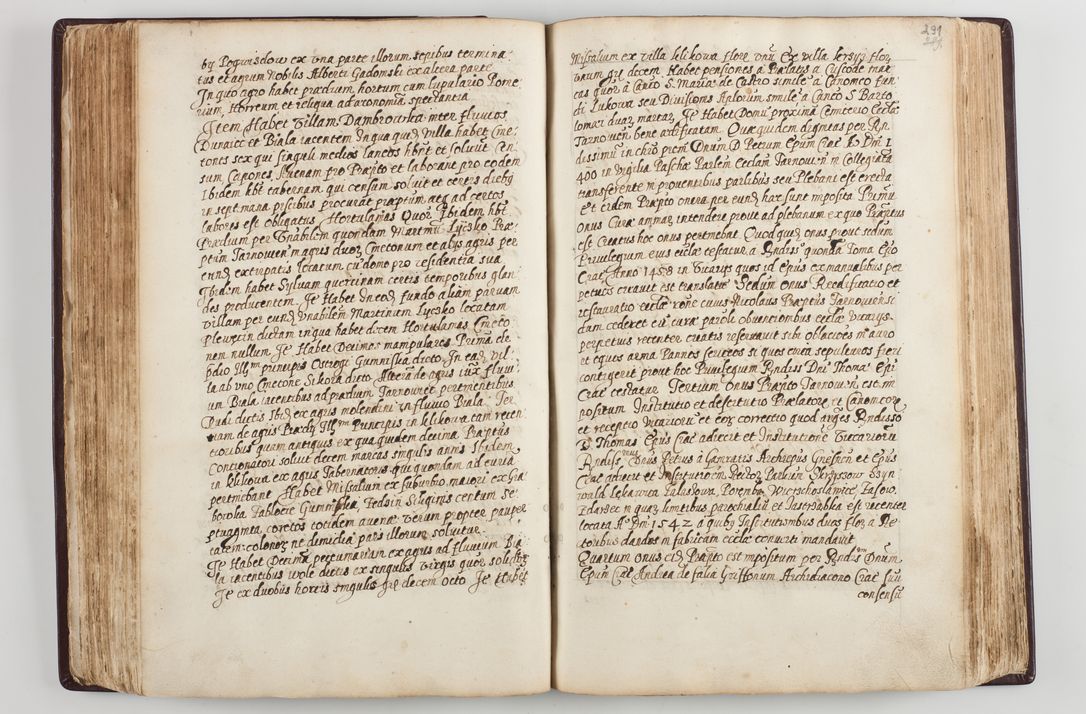 bÿ Pogwisdow ex vna parte illorum sepibus termina
tus et agrum Nobilis Alberti Gadomski ex altera parte
In quo agro habet prædium hortum cum lupulario Pome
rium, Horreum et reliqua ad œconomiã spectantia
Item Habet Villam Dambrowka inter fluuios
Dunaiec et Biala iacentem In qua quidẽ villa habet Cme
tones sex qui singuli medios laneos hbñt et soluũt Cen
sum Capones, Auenam pro Præpito et laborant pro eodem
Ibidem hẽt tabernam qui censum soluit et certis diebus
in septimana piscibus procurat præptum atq ad certos
labores est obligatus Hortulanos Quor Ibidem hẽt
Prædium per Gnabilem quondam Martinũ Lyczko Præ
ptum Tarnouien in agris duoz Cmetonum et alÿs agris per
eund extirpatis locatum cũ domo pro residentia sua
Ibidem habet Sÿluam quercinam certis temporibus glan
des producentem. Ite Habet In eod fundo aliam paruam
villam per eund Gnabilem Martinum Lyczko locatam
Plewczin dictam in qua habet decem Hortulanos Cmeto
nem nullum. Ite Habet Decimas manipulares Primã de
prædio Illm principis Ostrogi Gumniska dicto In eaď vil
la ab vno Cmetone Sikora dicto. Alterã de agris iuxta fluui
um Biala iacentibus ad prædium Tarnouiec pertinentibus
Rudi dictis Ibiď ex agris molendini in fluuio Biala. Ter
tiam de agris Prædÿ Illm Principis in klikowa tam recen
tioribus quam antiquis ex qua quidem decima Præptus
Contionatori soluit decem marcas singulis annis Ibidem
in klikowa ex agris Tabernatoris qui quondam ad curiã
pertinebant Habet Missalium ex suburbio maiori ex Gra
borowka Zablocie Gumniska, Terlsin Siliginis centum se
ptuaginta coretos totidem auenæ verum propter pauper
tatem colonoz nẽ dimidia pars illorum soluitur.
Ite Habet Decimã pecuniariam ex agris ad fluuium Bia
la iacentibus wole dictis ex singulis virgis quor solidos
Ite ex duobus hortis singulis gr decem octo Ite Habet
291
Missalium ex villa klikowa flore vnũ Ex villa kersÿ flor
vnum gr decem Habet pensiones a Prælatis a Custode mar
cas quor a Canco S. Mariæ de Castro simile a Canonico fun
di Lukowa seu Diuisionis Aplorum simile a Canco S. Barto
lomæi duaz marcaz Ite Habet Domũ proximã Cemiterio Eccle
Tarnouien bene ædificatam. Quæquidem dignitas per Rn
dissimũ in chrõ prem Dnum D Petrum Epum Crac Ao Dni 1
400 in Vigilia Paschæ Parlem Ecclam Tarnouien in Collegiatã
transferente in prouentibus parlibus seu Plebani est erecta
et eidem Præpto onera per eund hæc sunt imposita Primũ
Onus Curæ animaz intendere prout ad plebanum ex quo Præptus
est Creatus hoc onus pertinebat Quod quid onus prout sedum
Priuilegium eius ecclæ testatur a Rndis quonda Toma Epo
Crac Anno 1458 in Vicarios quos id Epus ex manualibus per
petuos creauit est translatũ Sedum onus Reædificatio et
restauratio ecclæ rone cuius Nicolaus Præptus Tarnouiensi
dum cederet ex curæ paroli obuentionibus ecclæ Vicarÿs
perpetuis recenter creatis reseruauit sibi oblaciões in auro
et equos arma Pannos sericeos si quos circa sepulturas fieri
contigerit prout hoc Priuilegium Rndissi Dni Thomæ Epi
Crac testatur Tertium Onus Præpto Tarnouien est im
positum Institutio et destitutio Prælatorẽ et Canonicorẽ
et receptio Vicariorũ et eoz correctio quod auxit Rndisso
D. Thomas Epus Crac adiecit et Institutionẽ Vicariorũ
Rndiss mus Dnus Petrus a Gamratis Archiepus Gnesien et Epus
Crac adiecit et Institutionẽ Rectoz Parlium Skrzÿszow Rzÿn
Wola Lekawica Zalassowa Poremba Wierzchoslawice Zasow,
Zdarzec in quaz limitibus parochialiũ et Jastrzabka est recenter
locata Ao Dni 1542 a quibz Institutionibus duos flor a Re
ctoribus dandos in fabricam ecclæ conuerti mandauit
Quartum onus eid Præpto est impositum per Rndism Dnum.
Epum Crac Andrea de Salia Griffonum Archidiacono Crac sui
consensũ